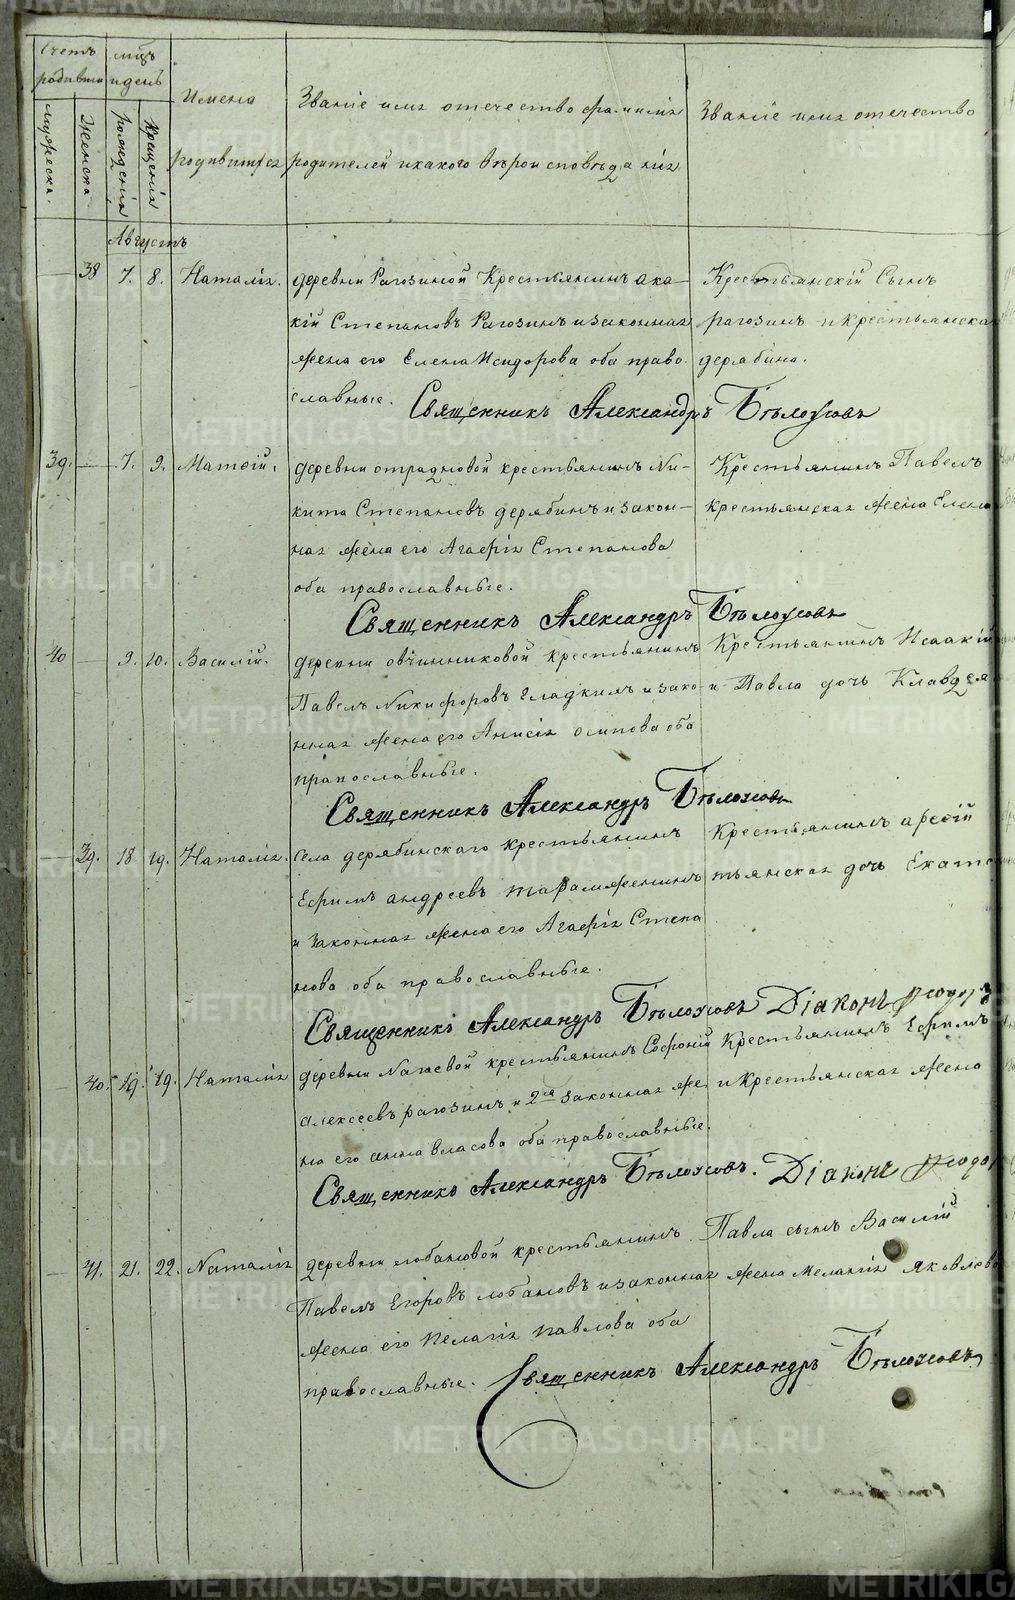 Счетъ родившихся
мужеска.
женска.
мѣсяцъ и день
рожденія
крещенія
Имена родившихся
Званіе имя отечество фамилія
родителей и какого вѣроисповѣданія
Званіе имя отечество
Августъ
38 7. 8. Наталія.
деревни Рагозиной Крестьянинъ Ака-
кій Степановъ Рагозинъ и законная
жена его Елена Исидорова оба право
славные.
Крестьянскій Сынъ
рагозинъ и крестьянская
дерябина.
Священникъ Александръ Бѣлоусовъ
39. 7. 9. Матѳій.
деревни отрадновой крестьянинъ Ни-
кита Степановъ дерябинъ и закон-
ная жена его Агафія Степанова
оба православные.
Крестьянинъ Павелъ
крестьянская жена Елена
Священникъ Александръ Бѣлоусовъ
40 9. 10. Василій.
деревни овчинниковой крестьянинъ
Павелъ Никифоровъ гладкихъ и зако
нная жена его Анисія осипова оба
православные.
Крестьянинъ Исаакій
и Павла дочь Клавдея
Священникъ Александръ Бѣлоусовъ
39. 18. 19. Наталія.
села дерябинскаго крестьянинъ
Ефимъ андреевъ
и законная жена его Агафія Степа
нова оба православные.
Крестьянинъ
тьянская дочь Екате
Священникъ Александръ Бѣлоусовъ Діаконъ
40. 19. 19. Наталія
деревни крестьянинъ Софроній
алексеевъ рагозинъ и 2я законная же
на его анна власова оба православные.
Крестьянинъ Ефимъ
и крестьянская жена
Священникъ Александръ Бѣлоусовъ. Діаконъ
41. 21. 22. Наталія
деревни лобановой крестьянинъ
Павелъ Егоровъ лобановъ и законная
жена его Пелагія павлова оба
православные.
Павла сынъ Василій
жена Меланія Яковлева
Священникъ Александръ Бѣлоусовъ
METRIKI.GASO-URAL.RU